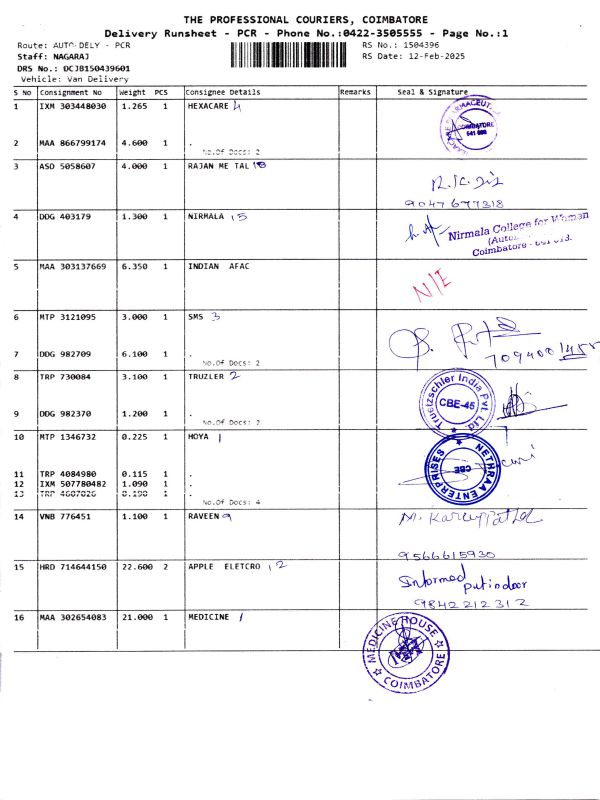 THE PROFESSIONAL COURIERS, COIMBATORE
Delivery Runsheet - PCR - Phone No.:0422-3505555 - Page No.:1
Route: AUTO DELY - PCR RS No.: 1504396
Staff: NAGARAJ RS Date: 12-Feb-2025
DRS No.: DCJB150439601
Vehicle: Van Delivery
S No Consignment No Weight PCS Consignee Details Remarks Seal & Signature
1 IXM 303448030 1.265 1 HEXACARE 4
COIMBATORE
2 MAA 866799174 4.600 1 .
No.Of Docs: 2
3 ASD 5058607 4.000 1 RAJAN ME TAL 10
9047677318
4 DDG 403179 1.300 1 NIRMALA 15
Nirmala College for Woman
Coimbatore
5 MAA 303137669 6.350 1 INDIAN AFAC
N/E
6 MTP 3121095 3.000 1 SMS 3
7 DDG 982709 6.100 1 .
No.Of Docs: 2
8 TRP 730084 3.100 1 TRUZLER 2
Truetzschler India Pvt Ltd.
CBE-45
9 DDG 982370 1.200 1 .
No.Of Docs: 2
10 MTP 1346732 0.225 1 HOYA 1
NETHRAA ENTERPRISES
CBE
11 TRP 4084980 0.115 1 .
12 IXM 507780482 1.090 1 .
13 TRP 4607026 0.190 1 .
No.Of Docs: 4
14 VNB 776451 1.100 1 RAVEEN 9
9566615930
15 HRD 714644150 22.600 2 APPLE ELETCRO 12
Informed
putindoor
9842212312
16 MAA 302654083 21.000 1 MEDICINE 1
MEDICINE HOUSE
COIMBATORE